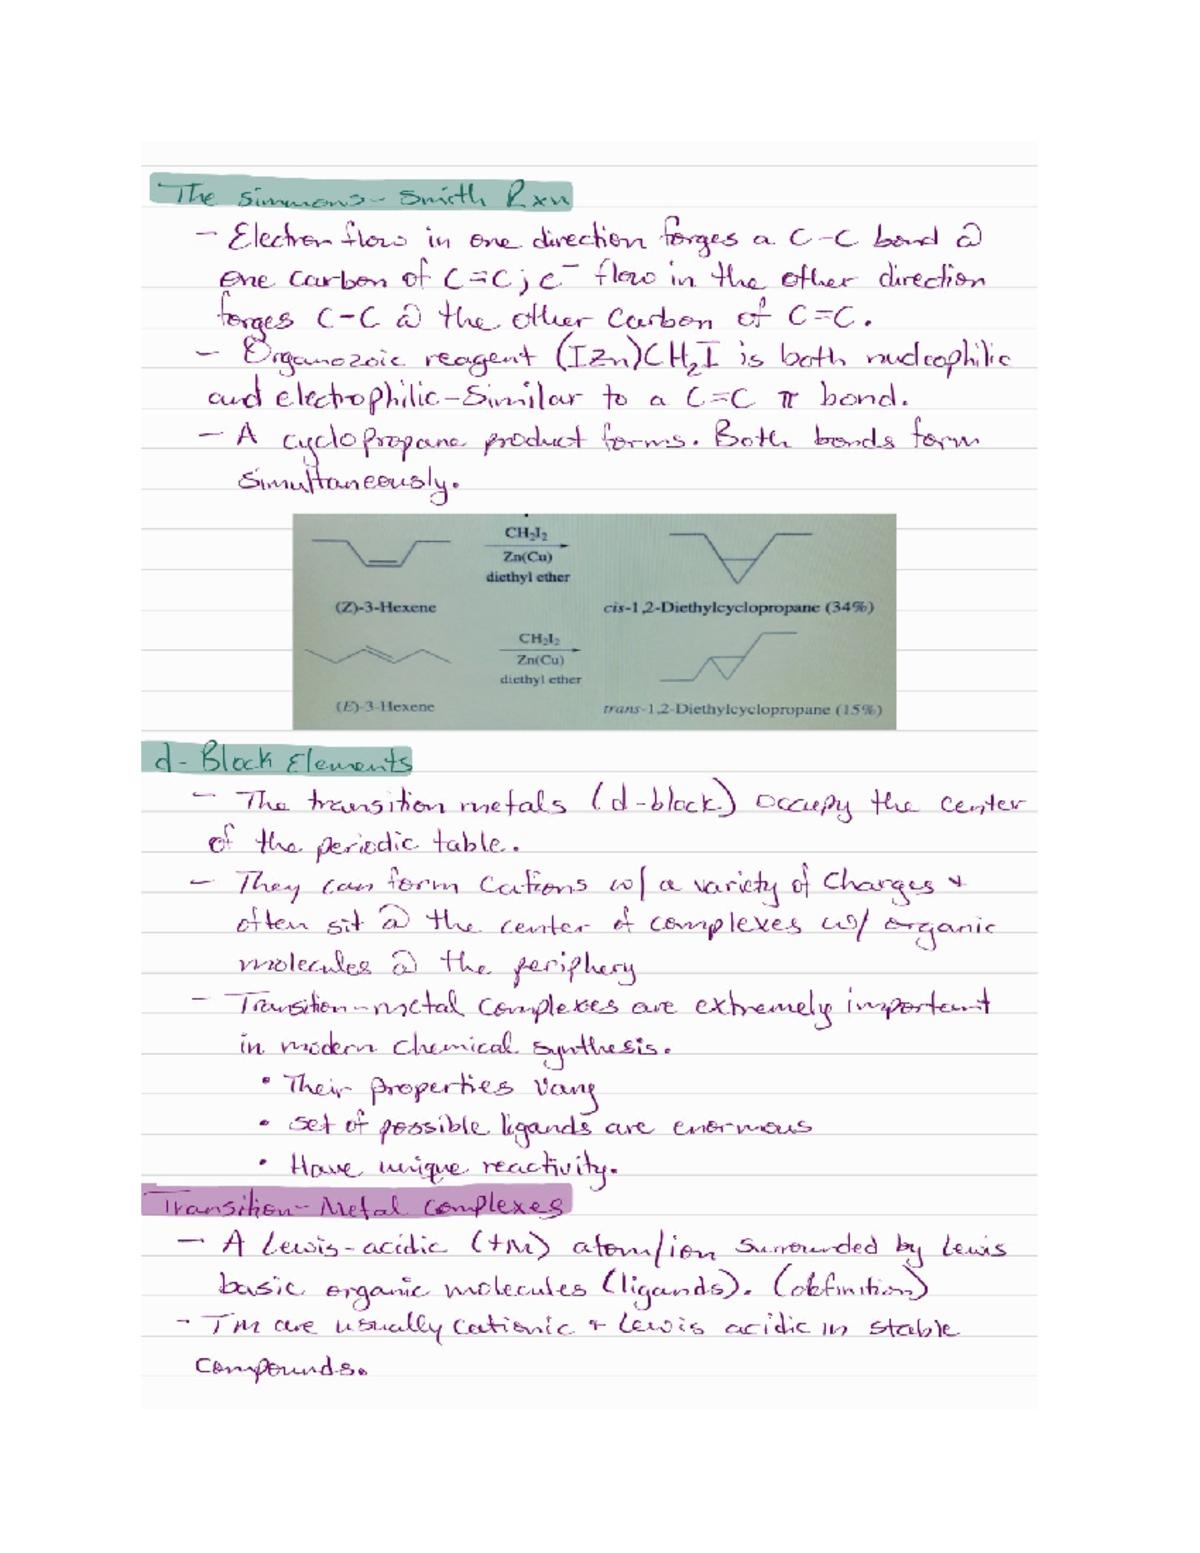 The Simmons-Smith Rxn
- Electron flow in one direction forges a C-C bond @
one carbon of C=C; e⁻ flow in the other direction
forges C-C @ the other carbon of C=C.
- Organozoic reagent (IZn)CH₂I is both nucleophilic
and electrophilic-Similar to a C=C π bond.
- A cyclopropane product forms. Both bonds form
simultaneously.
CH₂I₂
Zn(Cu)
diethyl ether
(Z)-3-Hexene
cis-1,2-Diethylcyclopropane (34%)
CH₂I₂
Zn(Cu)
diethyl ether
(E)-3-Hexene
trans-1,2-Diethylcyclopropane (15%)
d-Block Elements
- The transition metals (d-block) occupy the center
of the periodic table.
- They can form cations w/ a variety of charges +
often sit @ the center of complexes w/ organic
molecules @ the periphery
- Transition-metal complexes are extremely important
in modern chemical synthesis.
• Their properties vary
• set of possible ligands are enormous
• Have unique reactivity.
Transition-Metal Complexes
- A Lewis-acidic (tM) atom/ion surrounded by Lewis
basic organic molecules (ligands). (definition)
- TM are usually cationic + Lewis acidic in stable
compounds.